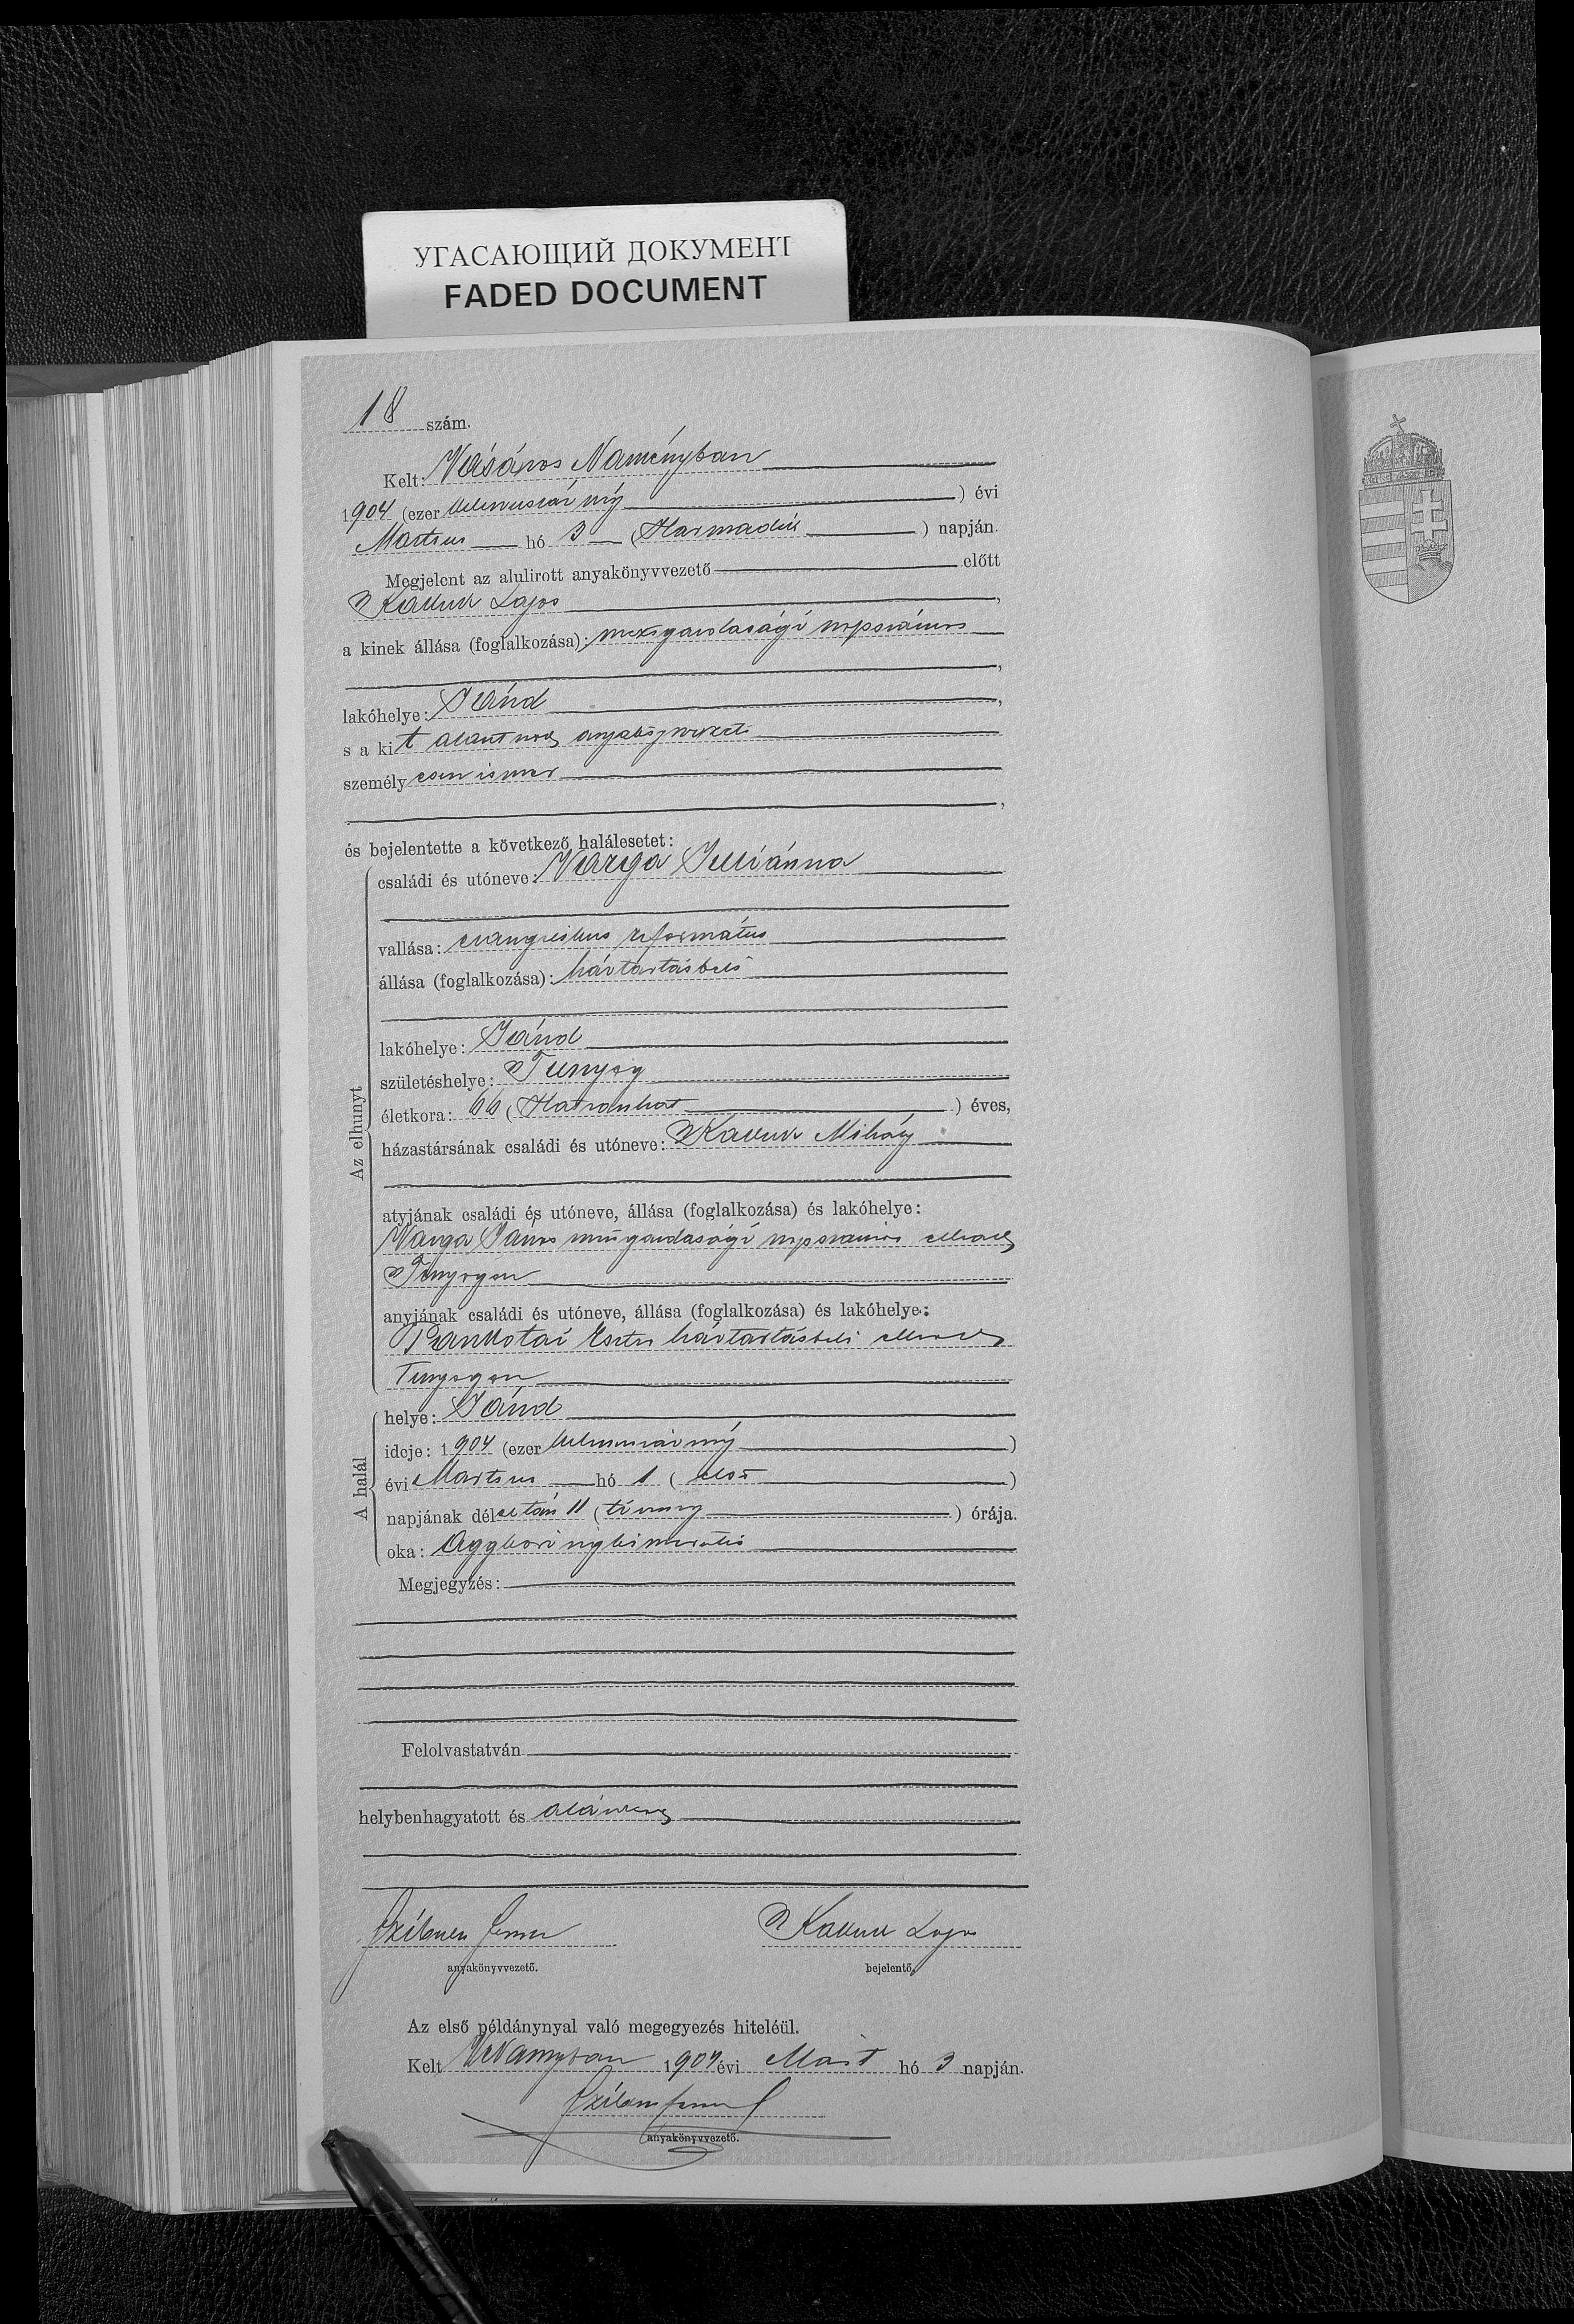 УГАСАЮЩИЙ ДОКУМЕНТ
FADED DOCUMENT
18 szám.
Kelt: Vásáros Naményban
1904 (ezer kilencszáz négy) évi
Martius hó 3 (Harmadik) napján.
Megjelent az alulirott anyakönyvvezető előtt
Lajos,
a kinek állása (foglalkozása): mezőgazdasági napszámos
,
lakóhelye: Jánd,
s a kit alant anyakönyvvezető
személyesen ismer
,
és bejelentette a következő halálesetet:
Az elhunyt
családi és utóneve: Varga Juliánna
vallása: evangelikus református
állása (foglalkozása): háztartásbeli
lakóhelye: Jánd
születéshelye: Tunyog
életkora: 66 (Hatvanhat) éves,
házastársának családi és utóneve: Mihály
atyjának családi és utóneve, állása (foglalkozása) és lakóhelye:
Varga János mezőgazdasági napszámos elhalt
Tunyogon
anyjának családi és utóneve, állása (foglalkozása) és lakóhelye:
Pankotai Eszter háztartásbeli elhalt
Tunyogon
A halál
helye: Jánd
ideje: 1904 (ezer kilencszáz négy)
évi Martius hó 1 (első)
napjának délelőtti 11 (tizenegy) órája.
oka: Aggkori végkimerülés
Megjegyzés:
Felolvastatván
helybenhagyatott és aláíratott
anyakönyvvezető.
Lajos
bejelentő.
Az első példánynyal való megegyezés hiteléül.
Kelt VNaményban 1904 évi Márt hó 3 napján.
anyakönyvvezető.